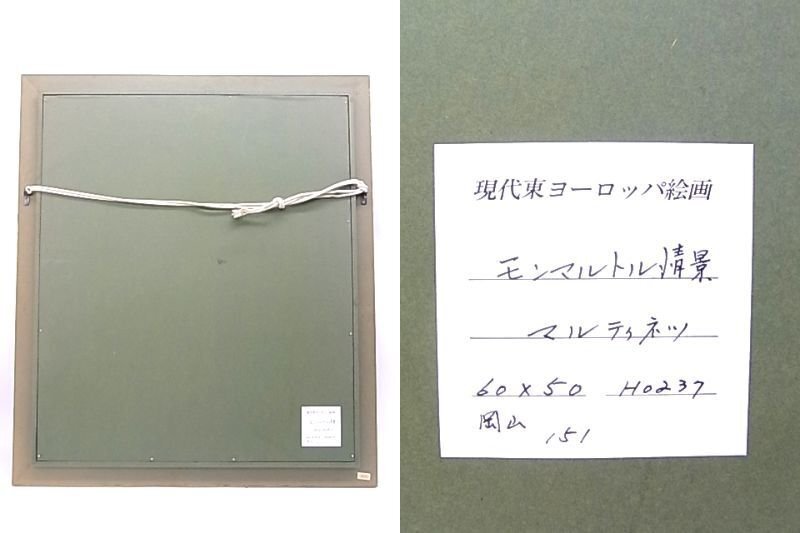 現代東ヨーロッパ絵画
モンマルトル情景
マルティネツ
60×50 H0237
岡山
151